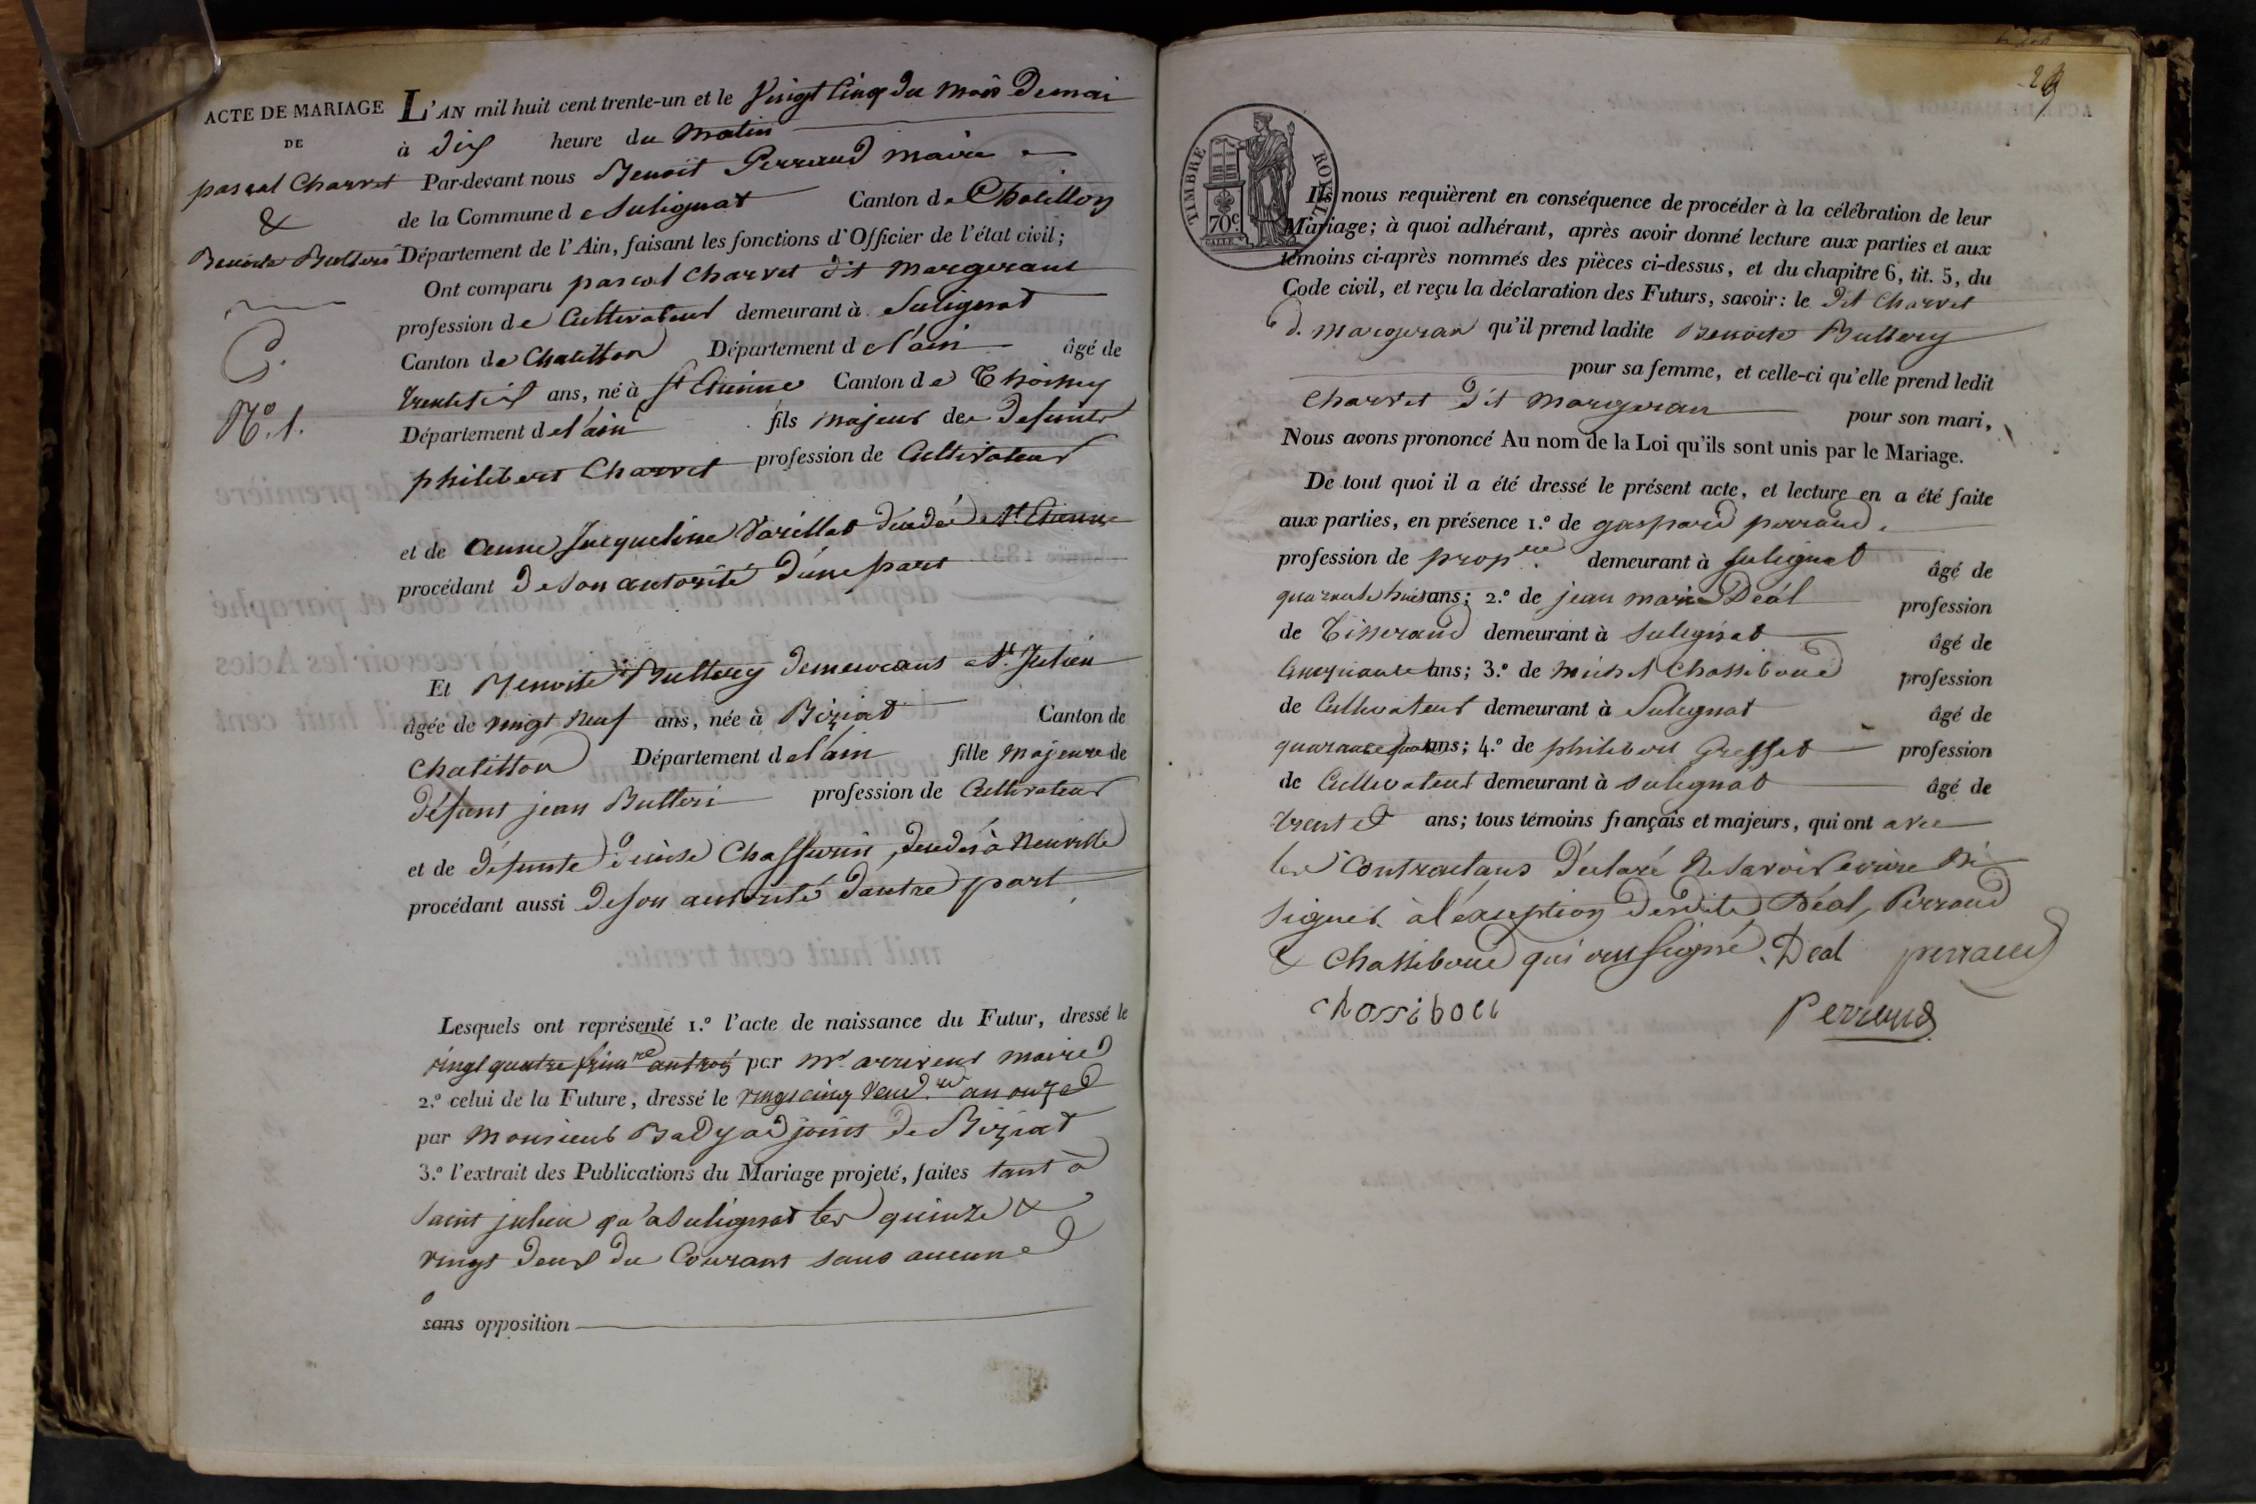 ACTE DE MARIAGE
DE
pascal Charvet
&
Benoite Bulteri
C.
N.o 1.
L'AN mil huit cent trente-un et le vingt cinq du mois demai
à dix heure du matin
Par-devant nous Benoit Perraud maire
de la Commune de Sulignat Canton de Chatillon
Département de l'Ain, faisant les fonctions d'Officier de l'état civil;
Ont comparu pascal Charvet dit Margerant
profession de Cultivateur demeurant à Sulignat
Canton de Chatillon Département de l'ain âgé de
trente six ans, né à St Etienne Canton de Thoissey
Département de l'ain fils majeur de defunte
philibert Charvet profession de Cultivateur
et de anne Jacqueline Varillat décédé a St. Etienne
procédant De son autorité d'une part
Et Benoite Bultery demeurans a St. Julien
âgée de vingt neuf ans, née à Biziat Canton de
Chatillon Département de l'ain fille majeure de
défunt jean Bulteri profession de Cultivateur
et de défunte denise Chasseurin, décédés à Neuville
procédant aussi De son autorité d'autre part
Lesquels ont représenté 1.º l'acte de naissance du Futur, dressé le
vingt quatre frimre an trois par Mr. arriveur maire
2.º celui de la Future, dressé le vingt cinq vend.re an onze
par Monsieur Bady adjoint de Biziat
3.º l'extrait des Publications du Mariage projeté, faites tant à
saint julien qu'a Sulignat les quinze &
vingt deux du Courant sans aucune
sans opposition
TIMBRE ROYAL
70c
Ils nous requièrent en conséquence de procéder à la célébration de leur
Mariage; à quoi adhérant, après avoir donné lecture aux parties et aux
témoins ci-après nommés des pièces ci-dessus, et du chapitre 6, tit. 5, du
Code civil, et reçu la déclaration des Futurs, savoir: le dit Charvet
d. Margeran qu'il prend ladite Benoite Bultery
pour sa femme, et celle-ci qu'elle prend ledit
Charvet dit Margeran pour son mari,
Nous avons prononcé Au nom de la Loi qu'ils sont unis par le Mariage.
De tout quoi il a été dressé le présent acte, et lecture en a été faite
aux parties, en présence 1.º de gaspard perraud
profession de prop.re demeurant à Sulignat âgé de
quarante huit ans; 2.º de jean marie Déal profession
de Tisserand demeurant à Sulignat âgé de
Cinquante ans; 3.º de michel Chassiboud profession
de Cultivateur demeurant à Sulignat âgé de
quarante quatre ans; 4.º de philibert Greffet profession
de Cultivateur demeurant à Sulignat âgé de
trente ans; tous témoins français et majeurs, qui ont avec
les Contractans déclaré ne savoir écrire ni
signer à l'exception desdits Déal, Perraud
& Chassiboud qui ont signé. Déal perraud
chossiboud Perraud